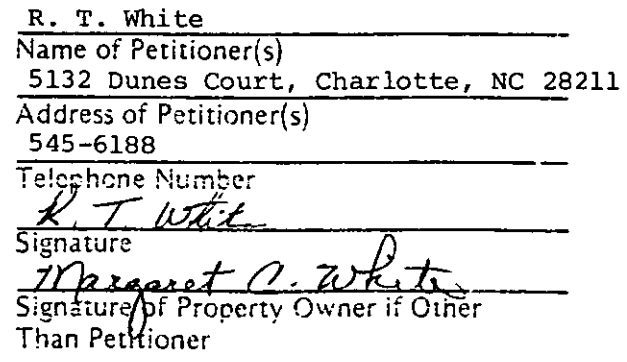 R. T. White
Name of Petitioner(s)
5132 Dunes Court, Charlotte, NC 28211
Address of Petitioner(s)
545-6188
Telephone Number
R. T. White
Signature
Margaret C. White
Signature of Property Owner if Other
Than Petitioner